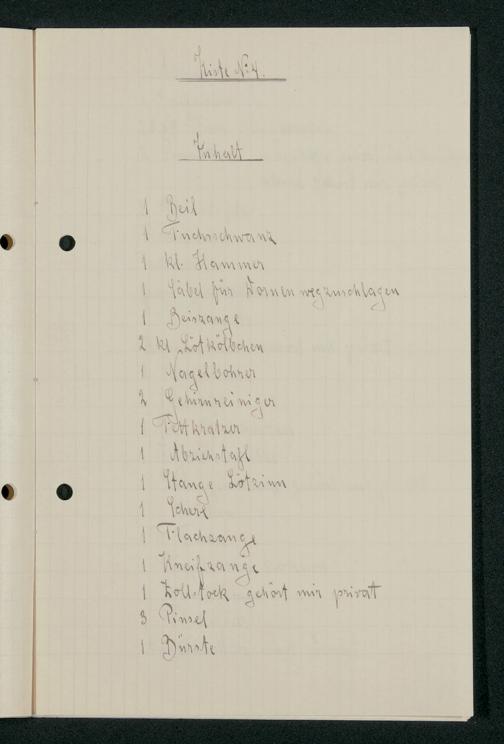 Kiste No: 4.
Inhalt
1 Beil
1 Fuchsschwanz
1 kl. Hammer
1 Säbel für Dornen wegzuschlagen
1 Beiszange
2 kl Lötkölbchen
1 Nagelbohrer
2 Gehirnreiniger
1 Fettkratzer
1 Abziehstahl
1 Stange Lötzinn
1 Schere
1 Flachzange
1 Kneifzange
1 Zollstock gehört mir privat
3 Pinsel
1 Bürste